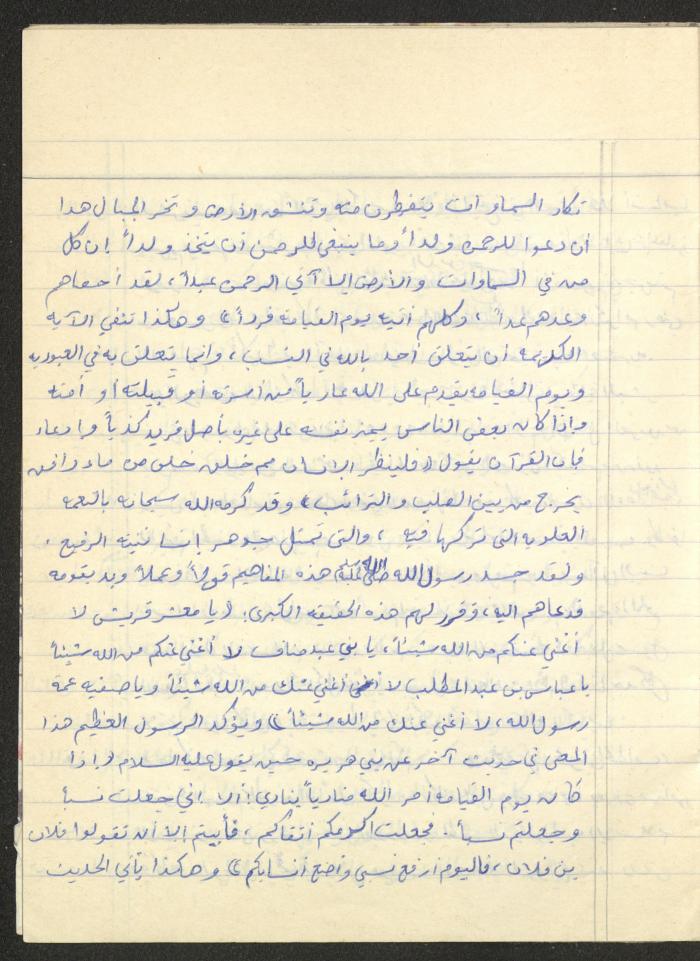 تكاد السماوات يتفطرن منه وتنشق الأرض وتخر الجبال هدا
أن دعوا للرحمن ولداً وما ينبغي للرحمن أن يتخذ ولداً إن كل
من في السماوات والأرض إلا آتي الرحمن عبداً، لقد أحصاهم
وعدهم عداً، وكلهم آتيه يوم القيامة فرداً) وهكذا تنفي الآيه
الكريمه أن يتعلق أحد بالله في النسب، وإنما يتعلق به في العبوديه
ويوم القيامه يقدم على الله عارياً من أسرته أو قبيلته أو أمته
وإذا كان بعض الناس يميز نفسه على غيره بأصل فريد كذباً وإدعاء
فإن القرآن يقول (فلينظر الإنسان مم خلق خلق من ماء دافق
يخرج من بين الصلب والترائب) وقد كرمه الله سبحانه بالنعمه
العلويه التى تركها فيه، والتى تمثل جوهر إنسانيته الرفيع.
ولقد جسد رسول الله صلى الله عليه وسلم هذه المفاهيم قولاً وعملاً وبدأ بقومه
فدعاهم اليه، وقرر لهم هذه الحقيقه الكبرى: (يا معشر قريش لا
أغني عنكم من الله شيئاً، يا بني عبد مناف لا أغني عنكم من الله شيئاً
يا عباس بن عبد المطلب لا أغني عنك من الله شيئاً ويا صفيه عمة
رسول الله، لا أغني عنك من الله شيئاً) ويؤكد الرسول العظيم هذا
المعنى في حديث آخر عن أبي هريره حين يقول عليه السلام (إذا
كان يوم القيامه أمر الله منادياً ينادي: ألا اني جعلت نسبأ
وجعلتم نسبأ. فجعلت اكرمكم أتقاكم، فأبيتم إلا أن تقولوا فلان
بن فلان، فاليوم أرفع نسبي وأضع أنسابكم) وهكذا يأتي الحديث